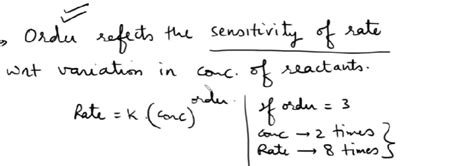 → Order reflects the sensitivity of rate
wrt variation in conc. of reactants.
Rate = K (conc)^order.
if order = 3
conc → 2 times
Rate → 8 times